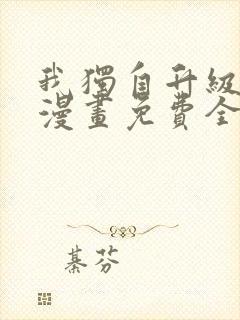 我獨自升級
漫畫免費全
綦芬